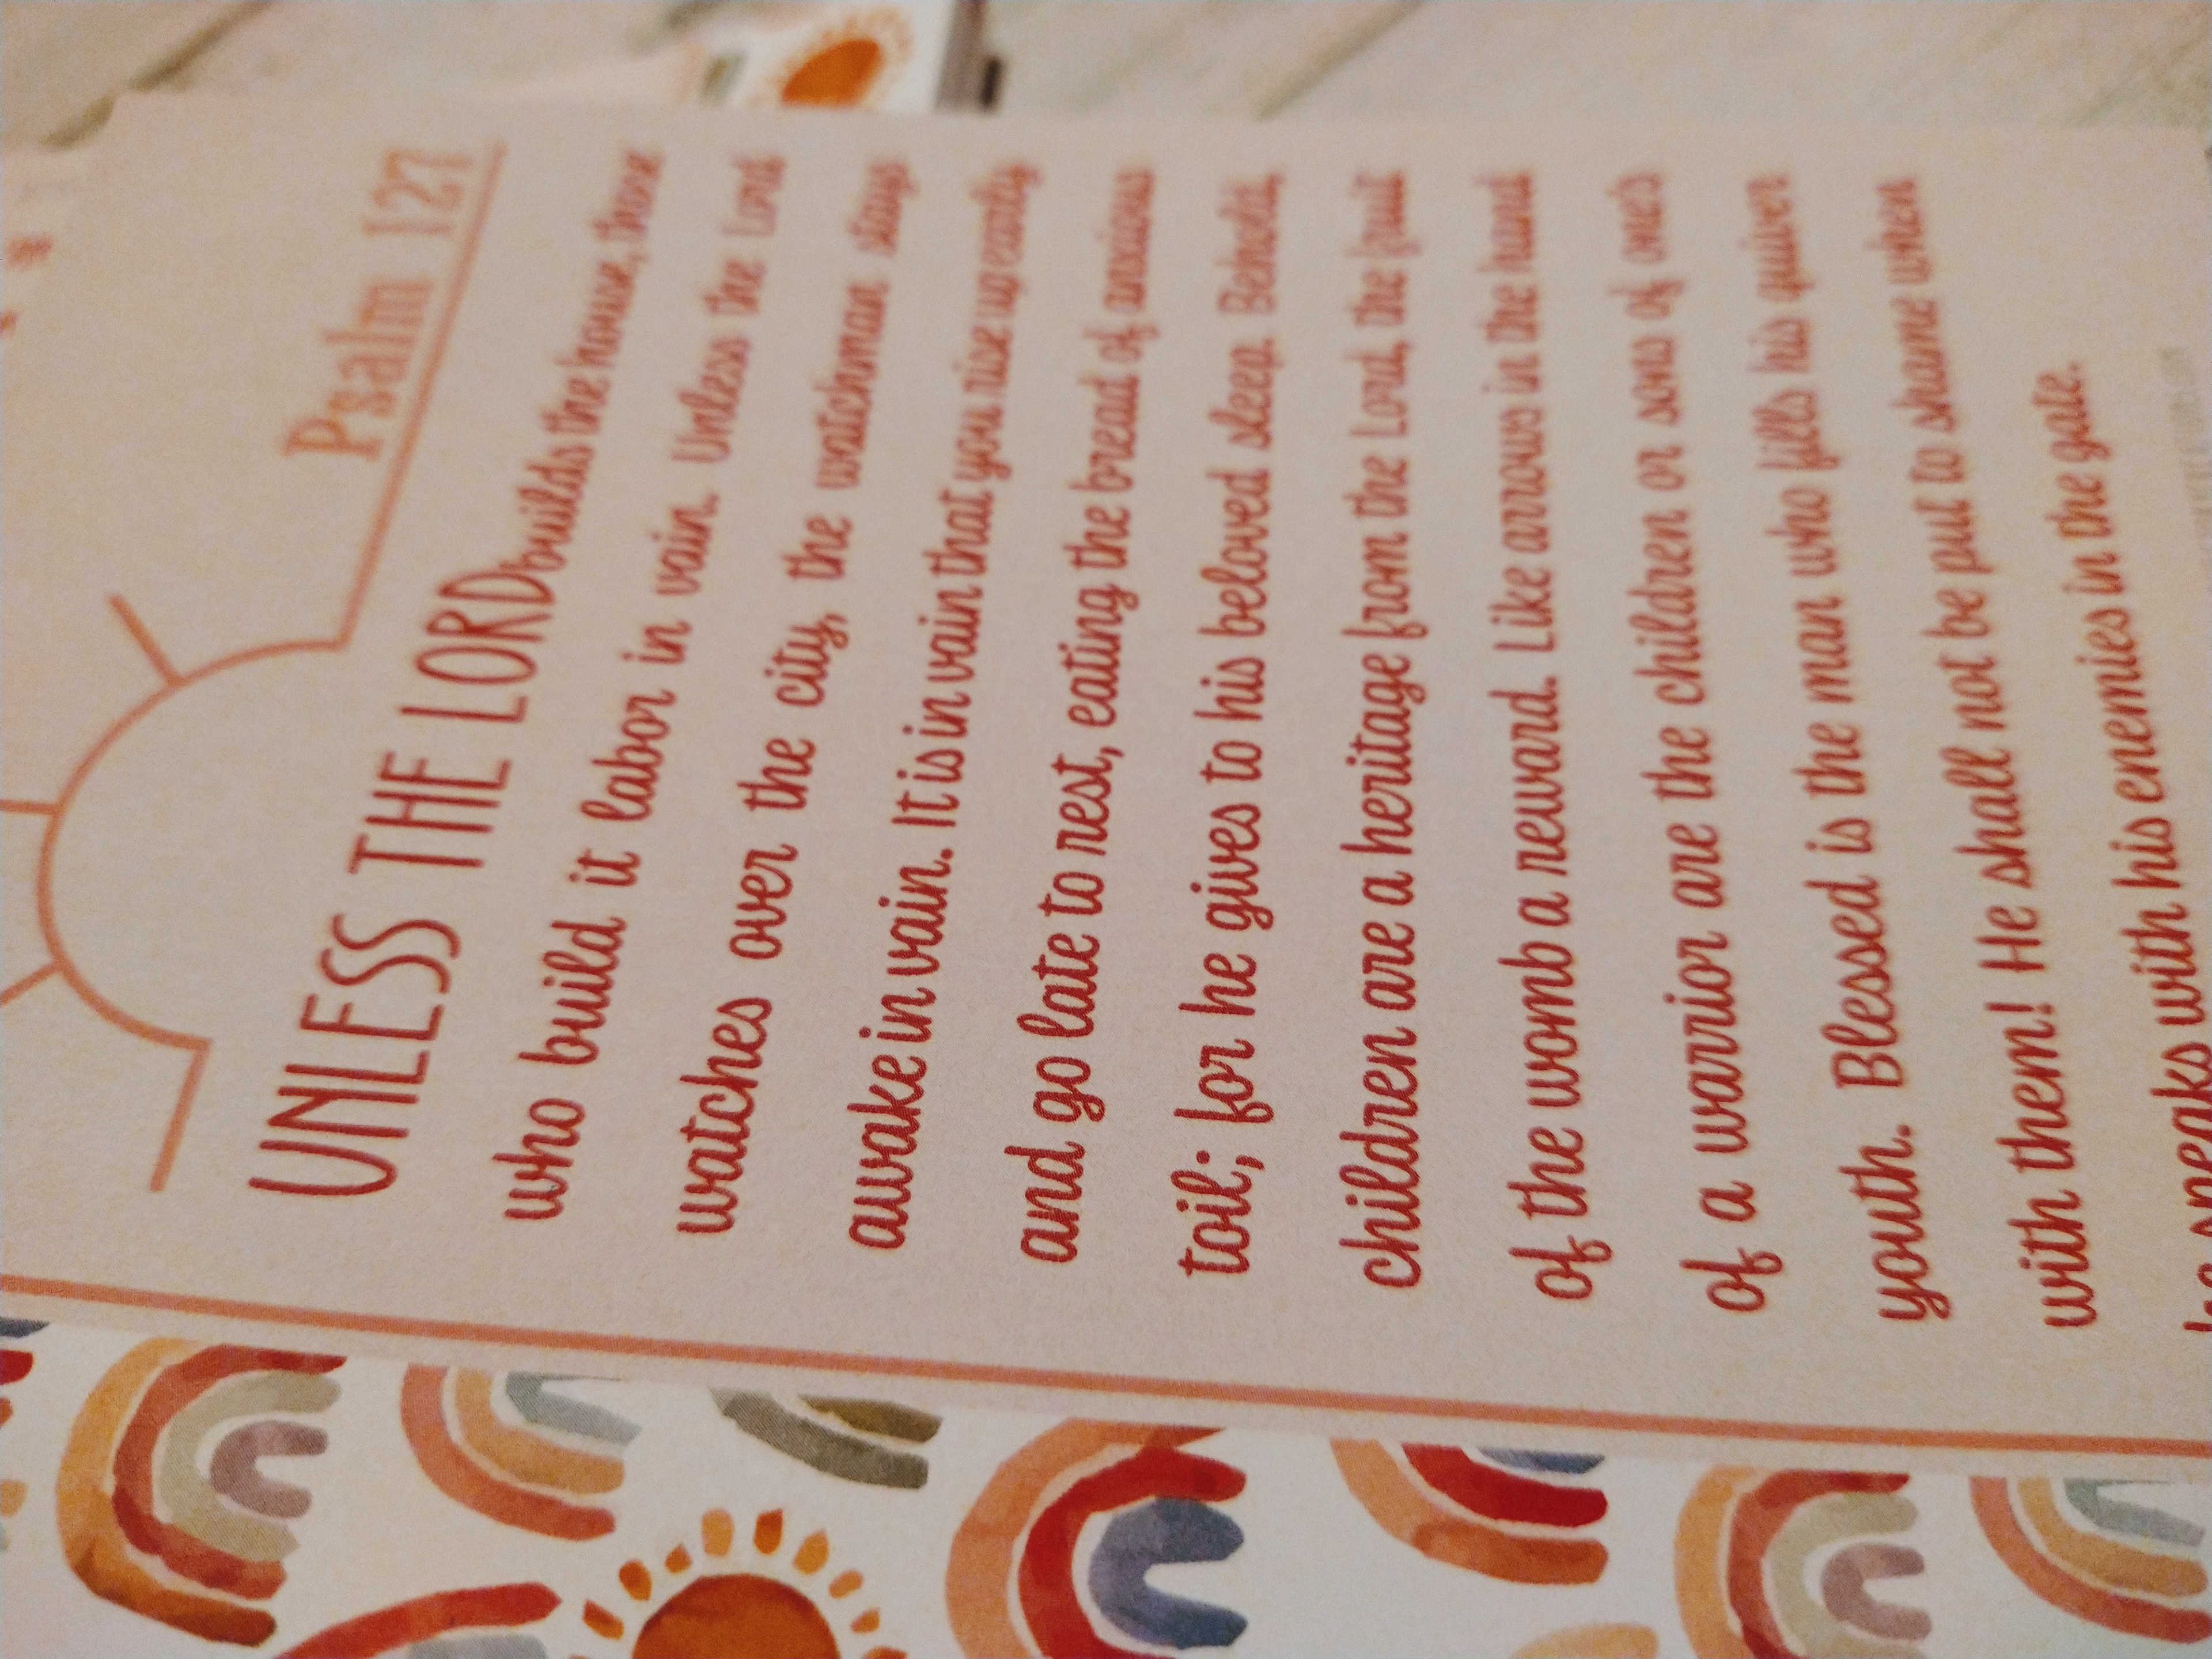 Psalm 127
UNLESS THE LORD builds the house, those
who build it labor in vain. Unless the Lord
watches over the city, the watchman stays
awake in vain. It is in vain that you rise up early
and go late to rest, eating the bread of anxious
toil; for he gives to his beloved sleep. Behold,
children are a heritage from the Lord, the fruit
of the womb a reward. Like arrows in the hand
of a warrior are the children or sons of one's
youth. Blessed is the man who fills his quiver
with them! He shall not be put to shame when
he speaks with his enemies in the gate.